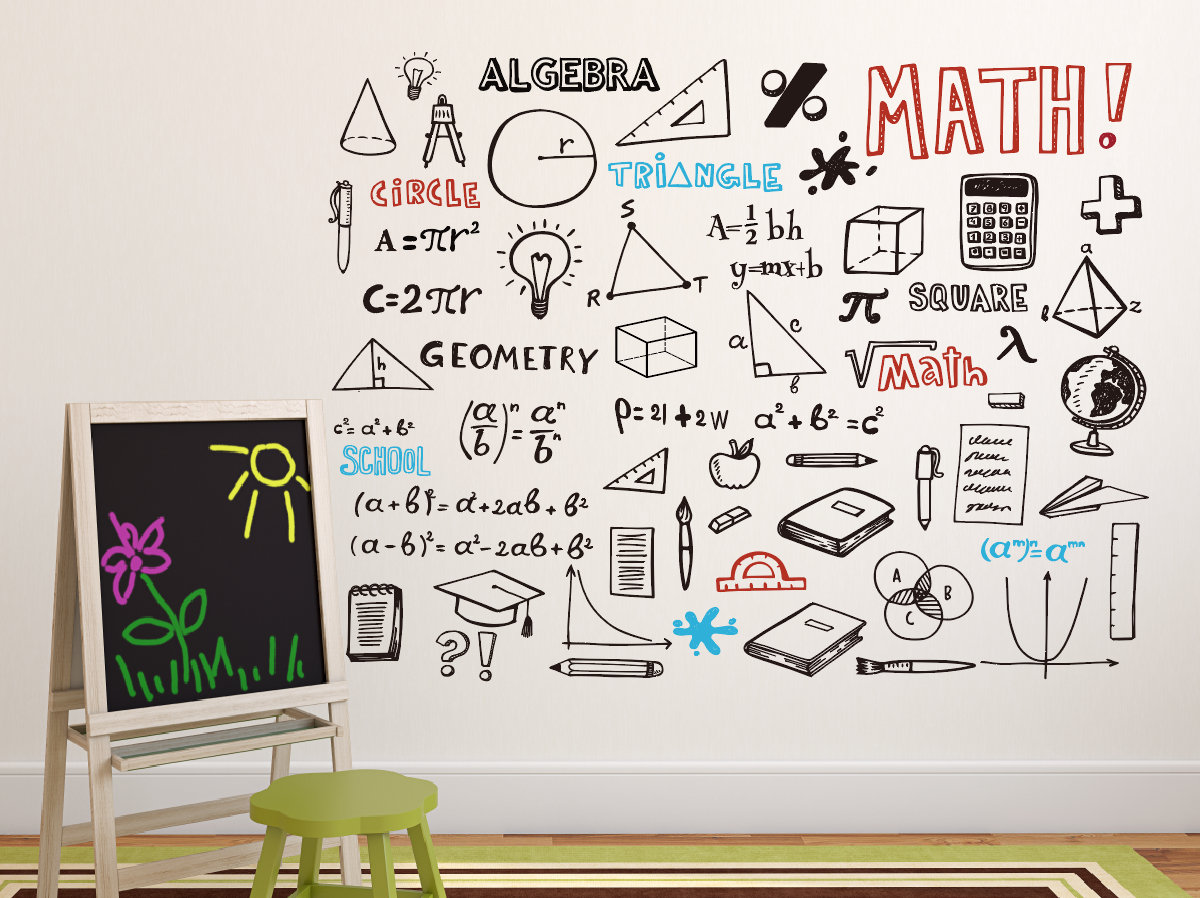 ALGEBRA
%
MATH!
r
CiRCLE
TRiANGLE
A=πr²
S
R
T
A=½ bh
y=mx+b
+
C=2πr
π
SQUARE
a
b
z
h
GEOMETRY
a
c
b
√Math
λ
c²= a²+b²
(a/b)ⁿ=aⁿ/bⁿ
P=2l+2W
a²+b²=c²
SCHOOL
(a+b)²=a²+2ab+b²
(a-b)²=a²-2ab+b²
(aᵐ)ⁿ=aᵐⁿ
A
B
C
?!